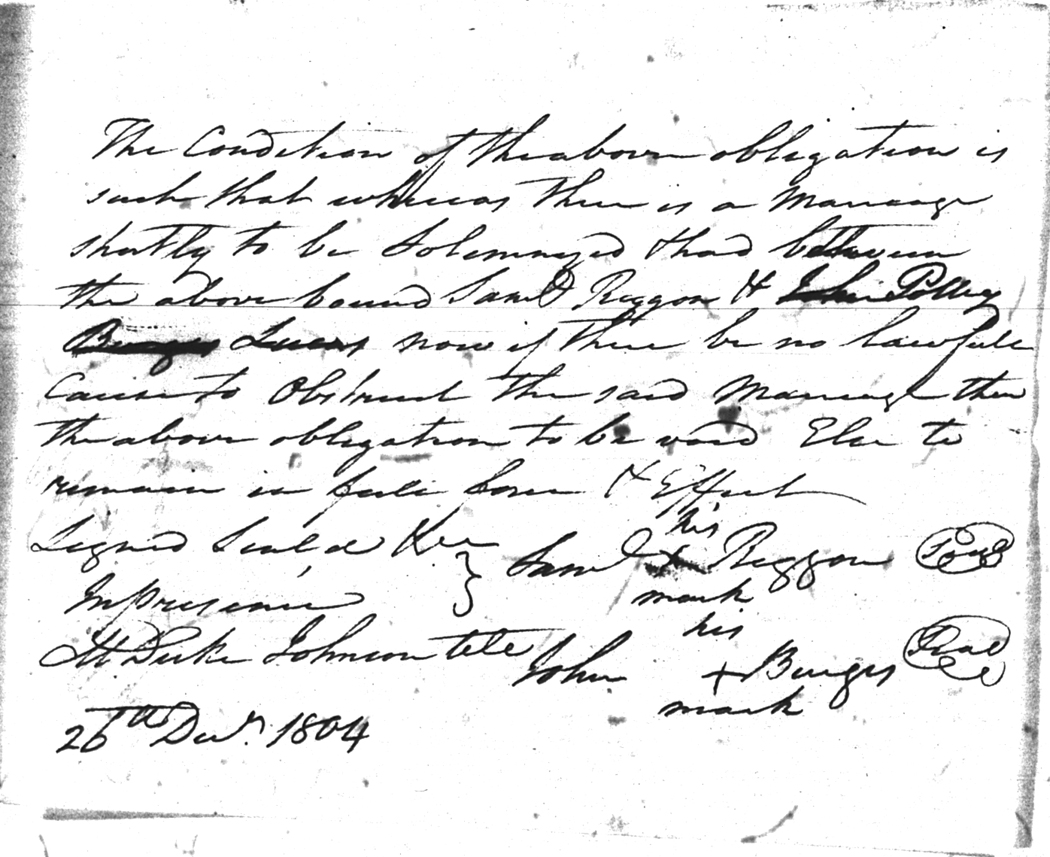 The Condition of the above obligation is
such that whereas there is a Marriage
shortly to be Solemnized & had between
the above bound Saml Riggon & Polley
Lucas now if there be no lawfull
Cause to Obstruct the said Marriage then
the above obligation to be void Else to
remain in full force & Effect
his
Signed Seal'd &
Saml x Riggon Seal
In presence
mark
his
Duke Johnson teste
John + Burges Seal
mark
26th Decr. 1804